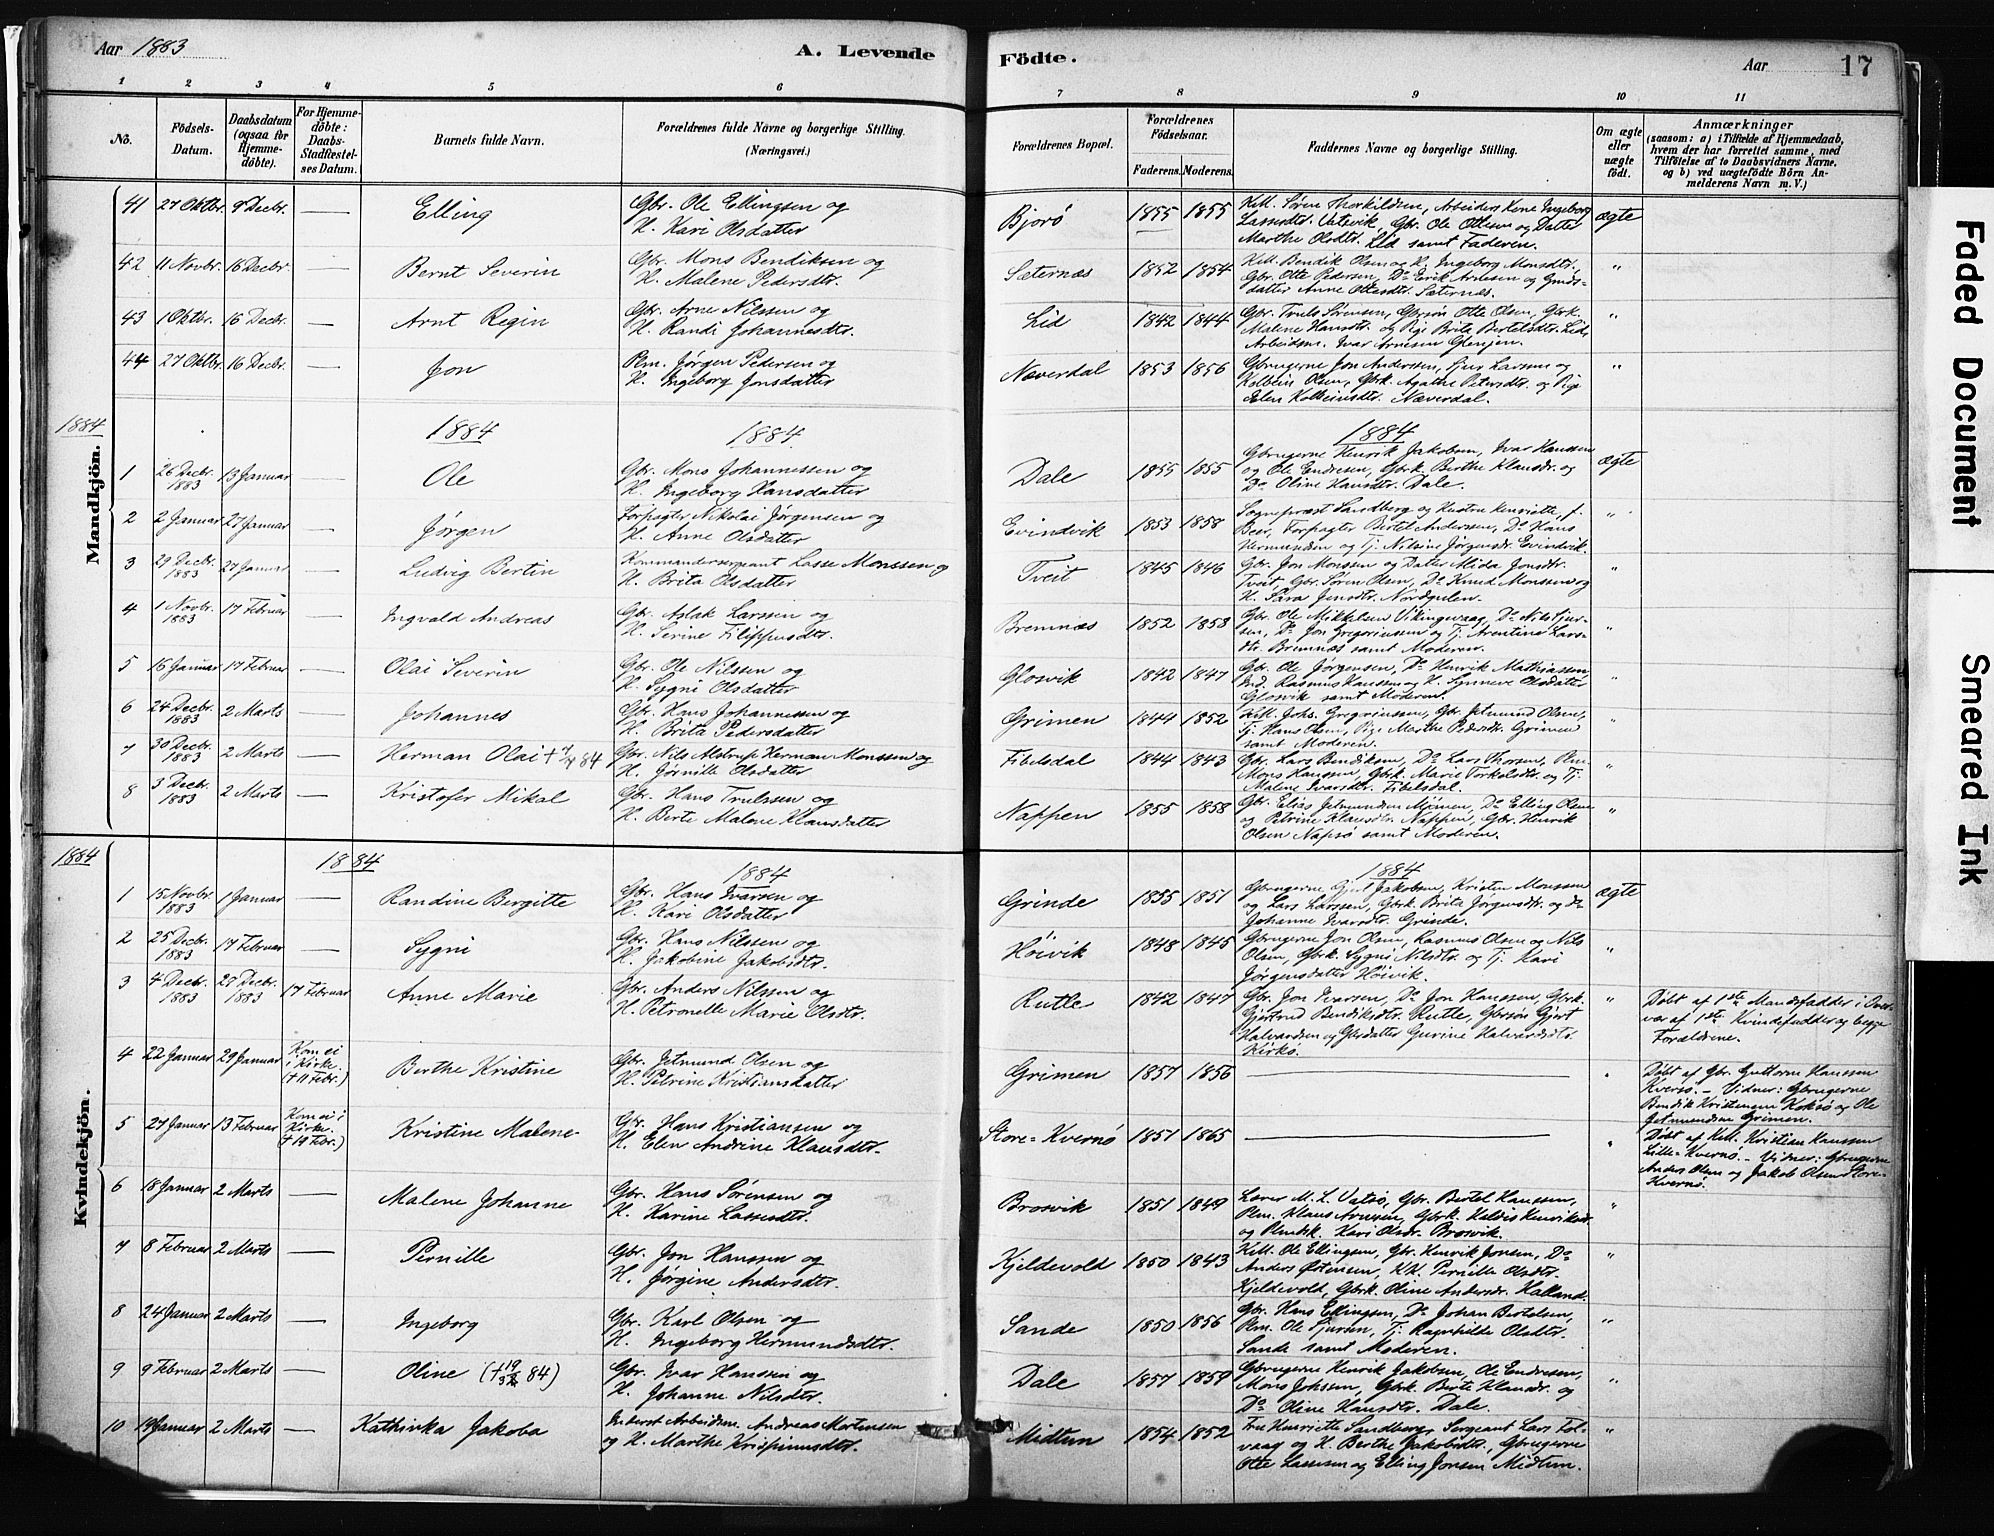 Aar 1883
A. Levende
Födte.
Aar
17
1 2 3 4 5 6 7 8 9 10 11
No.
Födsels-
Datum.
Daabsdatum
(ogsaa for
Hjemme-
döbte).
For Hjemme-
döbte:
Daabs-
Stadfæstel-
ses Datum.
Barnets fulde Navn.
Forældrenes fulde Navne og borgerlige Stilling.
(Næringsvei.)
Forældrenes Bopæl.
Forældrenes
Födselsaar.
Faderens. Moderens.
Faddernes Navne og borgerlige Stilling.
Om ægte
eller
uægte
födt.
Anmærkninger
(saasom: a) i Tilfælde af Hjemmedaab,
hvem der har forrettet samme, med
Tilföielse af to Daabsvidners Navne,
og b) ved uægtefödte Börn An-
melderens Navn m. V.)
41 27 Oktbr. 9 Decbr. — Elling
Gbr. Ole Ellingsen og
H. Kari Olsdatter
Bjorö 1855 1855
Kell. Sören Thorkildsen, Arbeiders Kone Ingeborg
Lassesdtr. Vatsvik, Gbr. Ole Ottesen og Datter
Marthe Olsdtr. Lid samt Faderen.
ægte
42 11 Novbr. 16 Decbr. — Bernt Severin
Gbr. Mons Bendiksen og
H. Malene Pedersdtr.
Sæternæs 1852 1854
Kell. Bendik Olsen og H. Ingeborg Monsdtr.,
Gbr. Otte Pedersen, Do Erik Arnesen og Gaards-
datter Anne Ottesdtr. Sæternæs.
"
43 1 Oktbr. 16 Decbr. — Arnt Regin
Gbr. Arne Nilssen og
H. Randi Johannesdtr.
Lid 1842 1844
Gbr. Truls Sörensen, Gbrsön Otte Olsen, Gbrk.
Malene Hansdtr. og Pige Brite Bertelsdtr. Lid,
Arbeidsm. Ivar Arnesen Glenjen.
"
44 27 Oktbr. 16 Decbr. — Jon
Plm. Jörgen Pedersen og
H. Ingeborg Jonsdatter
Næverdal 1853 1856
Gbrugerne Jon Anderssen, Sjur Larssen og
Kolbein Olsen, Gbrk. Agathe Petersdtr. og Pige
Elen Kolbeinsdtr. Næverdal.
"
1884
Mandkjön.
1884 1884 1884
1 26 Decbr. 1883 13 Januar — Ole
Gbr. Mons Johannessen og
H. Ingeborg Hansdatter
Dale 1855 1855
Gbrugerne Henrik Jakobsen, Ivar Hanssen
og Ole Endresen, Gbrk. Berthe Klausdtr. og
Do Oline Hansdtr. Dale.
ægte
2 2 Januar 27 Januar — Jörgen
Forpagter Nikolai Jörgensen og
H. Anne Olsdatter
Evindvik 1853 1858
Sogneprest Sandberg og Hustru Henriette, f.
Beer, Forpagter Bertel Andersen, Do Hans
Hermundsen og Tj. Nilsine Jörgensdtr. Evindvik.
"
3 29 Decbr. 1883 27 Januar — Ludvig Bertin
Kommandersergeant Lasse Monssen og
H. Brita Olsdatter
Tveit 1845 1846
Gbr. Jon Monssen og Datter Alida Jonsdtr.
Tveit, Gbr. Sören Olsen, Do Knud Monssen og
H. Sara Jensdtr. Nordgulen.
"
4 1 Novbr. 1883 17 Februar — Ingvald Andreas
Gbr. Aslak Larssen og
H. Serine Filippusdtr.
Bremnæs 1852 1853
Gbr. Ole Mikkelsen Vikingevaag, Do Nils Sjur-
sen, Do Jon Gregoriussen og Tj. Arentine Lars-
dtr. Bremnæs samt Moderen.
"
5 16 Januar 17 Februar — Olai Severin
Gbr. Ole Nilssen og
H. Sygni Olsdatter
Glosvik 1842 1847
Gbr. Ole Jörgensen, Do Henrik Mathiassen,
Ind. Rasmus Hanssen og H. Synneve Olsdatter
Glosvik samt Moderen.
"
6 24 Decbr. 1883 2 Marts — Johannes
Gbr. Hans Johannessen og
H. Brita Pedersdatter
Grimen 1844 1852
Kirk. Johs. Gregoriussen, Gbr. Jetmund Olsen,
Tj. Hans Olsen, Pige Marthe Pedersdtr. Grimen
samt Moderen.
"
7 30 Decbr. 1883 2 Marts — Herman Olai † 7/4 84
Gbr. Nils Alstrup Herman Monssen og
H. Jörnille Olsdatter
Fibelsdal 1844 1843
Gbr. Lars Bendiksen, Do Lars Thorsen, Plm.
Mons Hanssen, Gbrk. Marie Torkelsdtr. og Tj.
Malene Ivarsdtr. Fibelsdal.
"
8 3 Decbr. 1883 2 Marts — Kristofer Mikal
Gbr. Hans Trulssen og
H. Berte Malene Klausdatter
Nappen 1855 1858
Gbr. Elias Jetmundsen Mjömen, Do Elling Olsen
og Petrine Klausdtr. Nappen, Gbr. Henrik
Olsen Napsö samt Moderen.
"
1884
Kvindekjön.
1884 1884 1884
1 15 Novbr. 1883 1 Januar — Randine Bergitte
Gbr. Hans Ivarsen og
H. Kari Olsdatter
Grinde 1855 1851
Gbrugerne Gjert Jakobsen, Kristen Monssen
og Lars Larssen, Gbrk. Brita Jörgensdtr. og Do
Johanne Ivarsdtr. Grinde.
ægte
2 25 Decbr. 1883 17 Februar — Sygni
Gbr. Hans Nilssen og
H. Jakobine Jakobsdtr.
Höivik 1848 1845
Gbrugerne Jon Olsen, Rasmus Olsen og Nils
Olsen, Gbrk. Sygni Nilsdtr. og Tj. Kari
Jörgensdatter Höivik.
"
3 4 Decbr. 1883 27 Decbr. 1883 17 Februar Anne Marie
Gbr. Anders Nilssen og
H. Petronelle Marie Olsdtr.
Rutle 1842 1847
Gbr. Jon Ivarsen, Do Jon Hanssen, Gbrk.
Gjertrud Bendiksdtr. Rutle, Gbrsön Gjert
Halvardsen og Gbrdatter Gurine Halvardsdtr.
Kirkö.
"
Döbt af 1ste Mandsfadder i Over-
vær af 1ste Kvindefadder og begge
Forældrene.
4 22 Januar 29 Januar Kom ei
i Kirke.
(† 11 Febr.)
Berthe Kristine
Gbr. Jetmund Olsen og
H. Petrine Kristiansdatter
Grimen 1857 1856 —
"
Döbt af Gbr. Guttorm Hanssen
Kversö. – Vidner: Gbrugerne
Bendik Kristensen Koksö og Ole
Jetmundsen Grimen.
5 27 Januar 13 Februar Kom ei i
Kirke.
(† 19 Febr.)
Kristine Malene
Gbr. Hans Kristiansen og
H. Elen Andrine Klausdtr.
Store-Kvernö 1851 1865 —
"
Döbt af Kell. Kristian Hanssen
Lille-Kvernö. – Vidner: Gbrugerne
Anders Olsen og Jakob Olsen Store-
Kvernö.
6 18 Januar 2 Marts — Malene Johanne
Gbr. Hans Sörensen og
H. Karine Lassesdtr.
Brosvik 1851 1849
Lærer M. L. Vatsö, Gbr. Bertel Hanssen,
Plm. Klaus Arnesen, Gbrk. Heldis Henriksd.
og Plmdk. Kari Olsdr. Brosvik.
"
7 8 Februar 2 Marts — Pernille
Gbr. Jon Hanssen og
H. Jörgine Andersdtr.
Kjeldevold 1850 1843
Kell. Ole Ellingsen, Gbr. Henrik Jonsen, Do
Anders Östensen, KK. Pernille Olsdtr.
Kjeldevold, Gbrk. Oline Andersdr. Halland.
"
8 24 Januar 2 Marts — Ingeborg
Gbr. Karl Olsen og
H. Ingeborg Hermundsdtr.
Sande 1850 1856
Gbr. Hans Ellingsen, Do Johan Bertelsen,
Plm. Ole Sjursen, Tj. Ragnhilde Olsdtr.
Sande samt Moderen.
"
9 9 Februar 2 Marts — Oline († 19/3 84)
Gbr. Ivar Hanssen og
H. Johanne Nilsdtr.
Dale 1857 1859
Gbrugerne Henrik Jakobsen, Ole Endresen,
Mons Johssen, Gbrk. Berte Klausdr. og
Do Oline Hansdtr. Dale.
"
10 19 Januar 2 Marts — Kathinka Jakoba
Inderst Arbeidsm. Andreas Mortensen
og H. Marthe Krispinusdtr.
Midtun 1854 1852
Fru Henriette Sandberg, Sergeant Lars Fol-
vaag og H. Berthe Jakobsdtr., Gbrugerne
Otte Lassesen og Elling Jonsen Midtun.
"
Faded Document
Smeared Ink